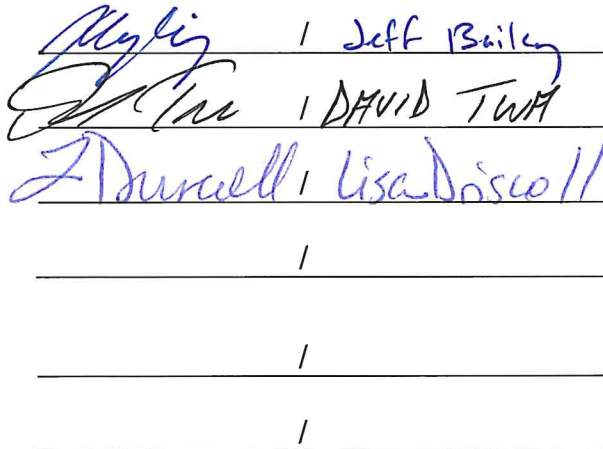 / Jeff Bailey
/ DAVID TWA
L Driscoll / Lisa Driscoll
/
/
/